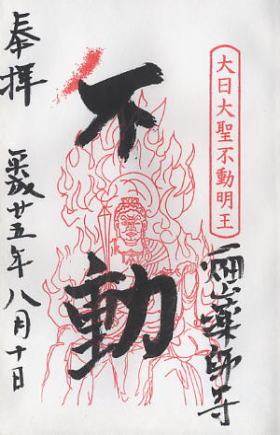 大日大聖不動明王
薬師寺
不動
奉拝
平成廿五年八月十日